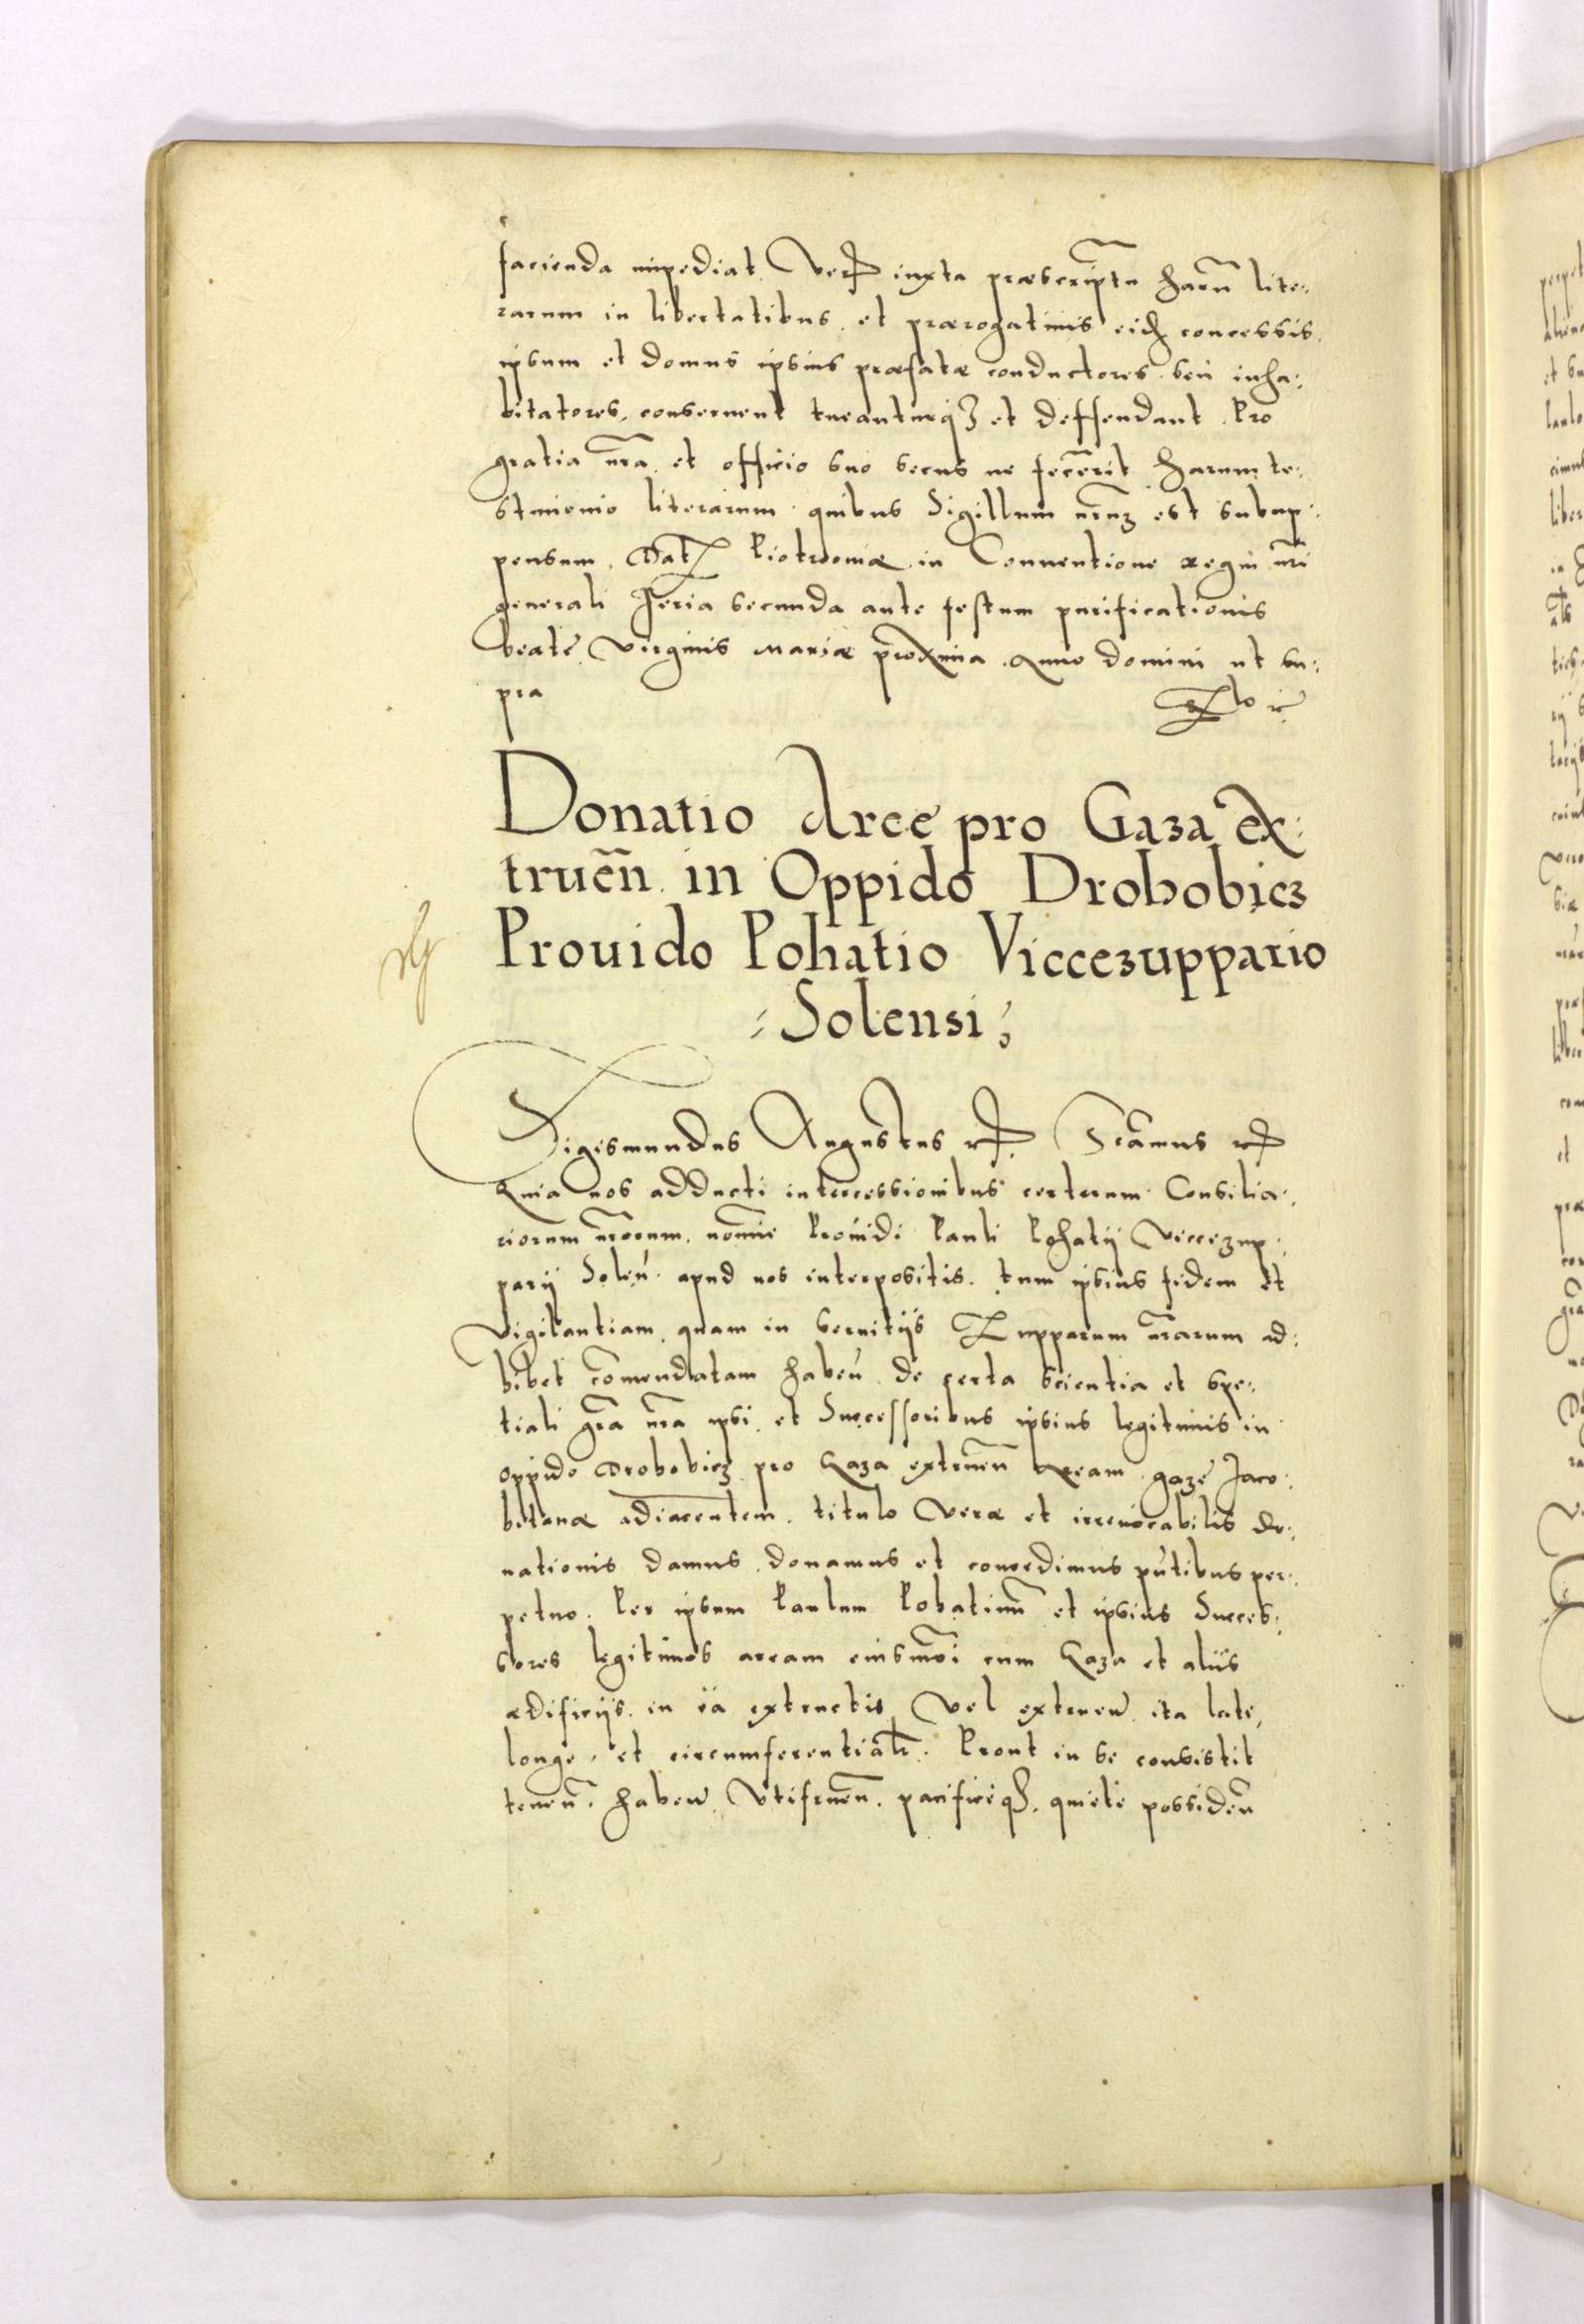 facienda impediat Ver iuxta præscriptũ harũ lite:
rarum in libertatibus et prærogatiuis eid concessis.
ipsum et domus ipsius præfatæ conductores seu inha:
bitatores, conseruent tueanturq3 et deffendant. Pro
gratia nrã et officio suo secus ne fecerit harum te:
stimonio literarum quibus Sigillum nrũ3 est subap:
pensum. Dat Piotrcouiæ in Conuentione regni nrĩ
generali Feria secunda ante festum purificationis
beate Virginis Mariæ proxima Anno domini ut su:
pra
Donatio Aree pro Gaza ex:
truẽn in Oppido Drohobicz
Prouido Lohatio Viccezuppario
Solensi;
Sigismundus Augustus rex Scamus
Quia nos adducti intercessionibus certorum Consilia:
riorum nrõrum nomie Prouidi Pauli Lohatij Viccezup:
parij Solen apud nos interpositis. tum ipsius fidem et
vigilantiam quam in seruitijs Zupparum nrãrum ad:
hibet cõmendatam haben de certa scientia et spe:
tiali grã nrã ipsi et Successoribus ipsius legitimis in
oppido Drohobicz pro Gaza extruẽn Aream gaze Jaco:
betanæ adiacentem. titulo veræ et irreuocabilis do:
nationis damus donamus et concedimus pñtibus per:
petuo. Per ipsum Paulum Lohatiũ et ipsius Succes:
sores legitimos aream eiusmõi cum Gaza et aliis
ædificijs in ea extructis Vel extruen ita late,
longe, et circumferentialr. Prout in se consistit
tenen. haben Vtifruen. pacificeq, quiete possiden